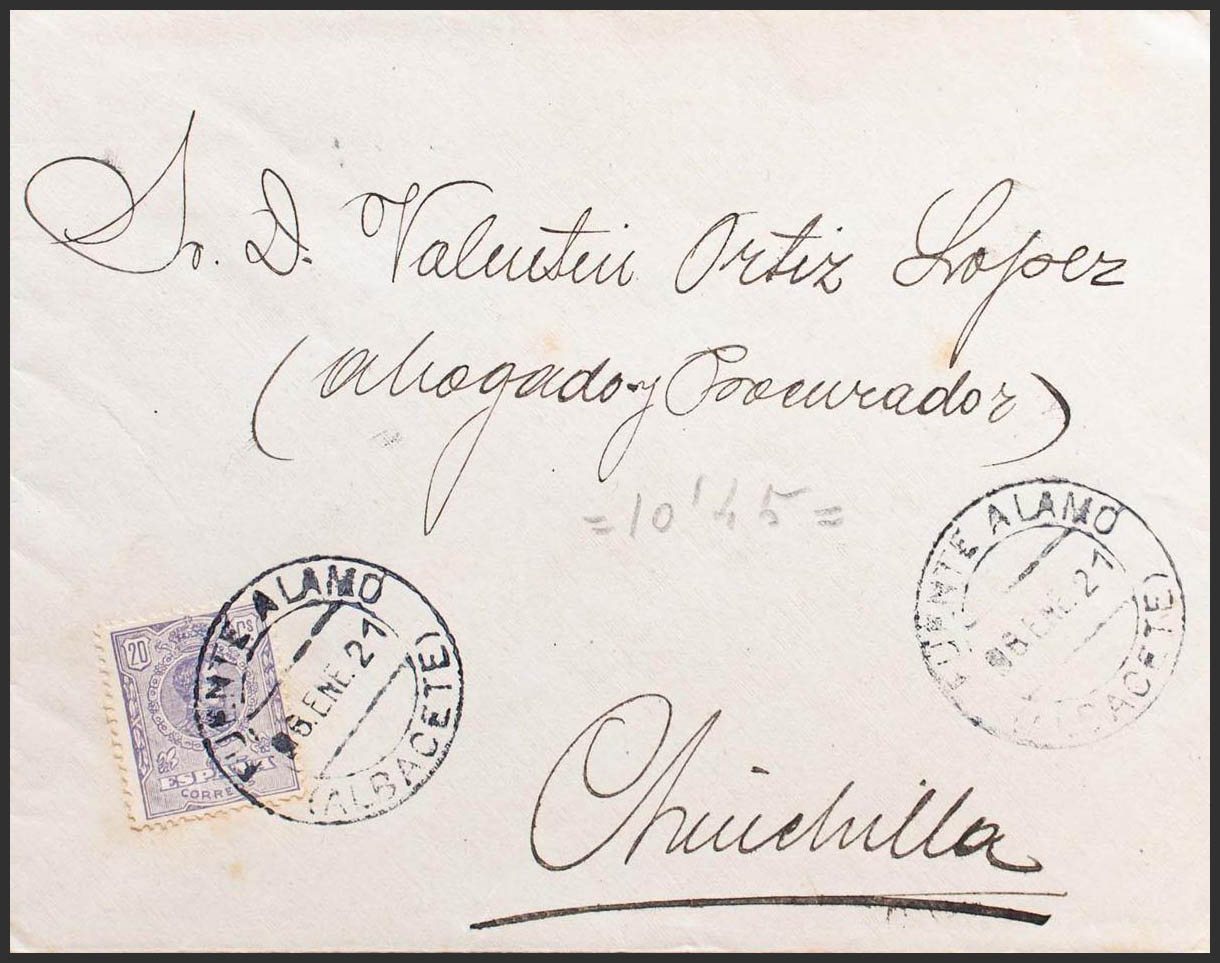 Sr. D. Valentin Ortiz Lopez
(Abogado y Procurador)
=10'45=
FUENTE ALAMO
6.ENE.21
(ALBACETE)
20 CTS
ESPAÑA
CORREOS
FUENTE ALAMO
6.ENE.21
(ALBACETE)
Chinchilla